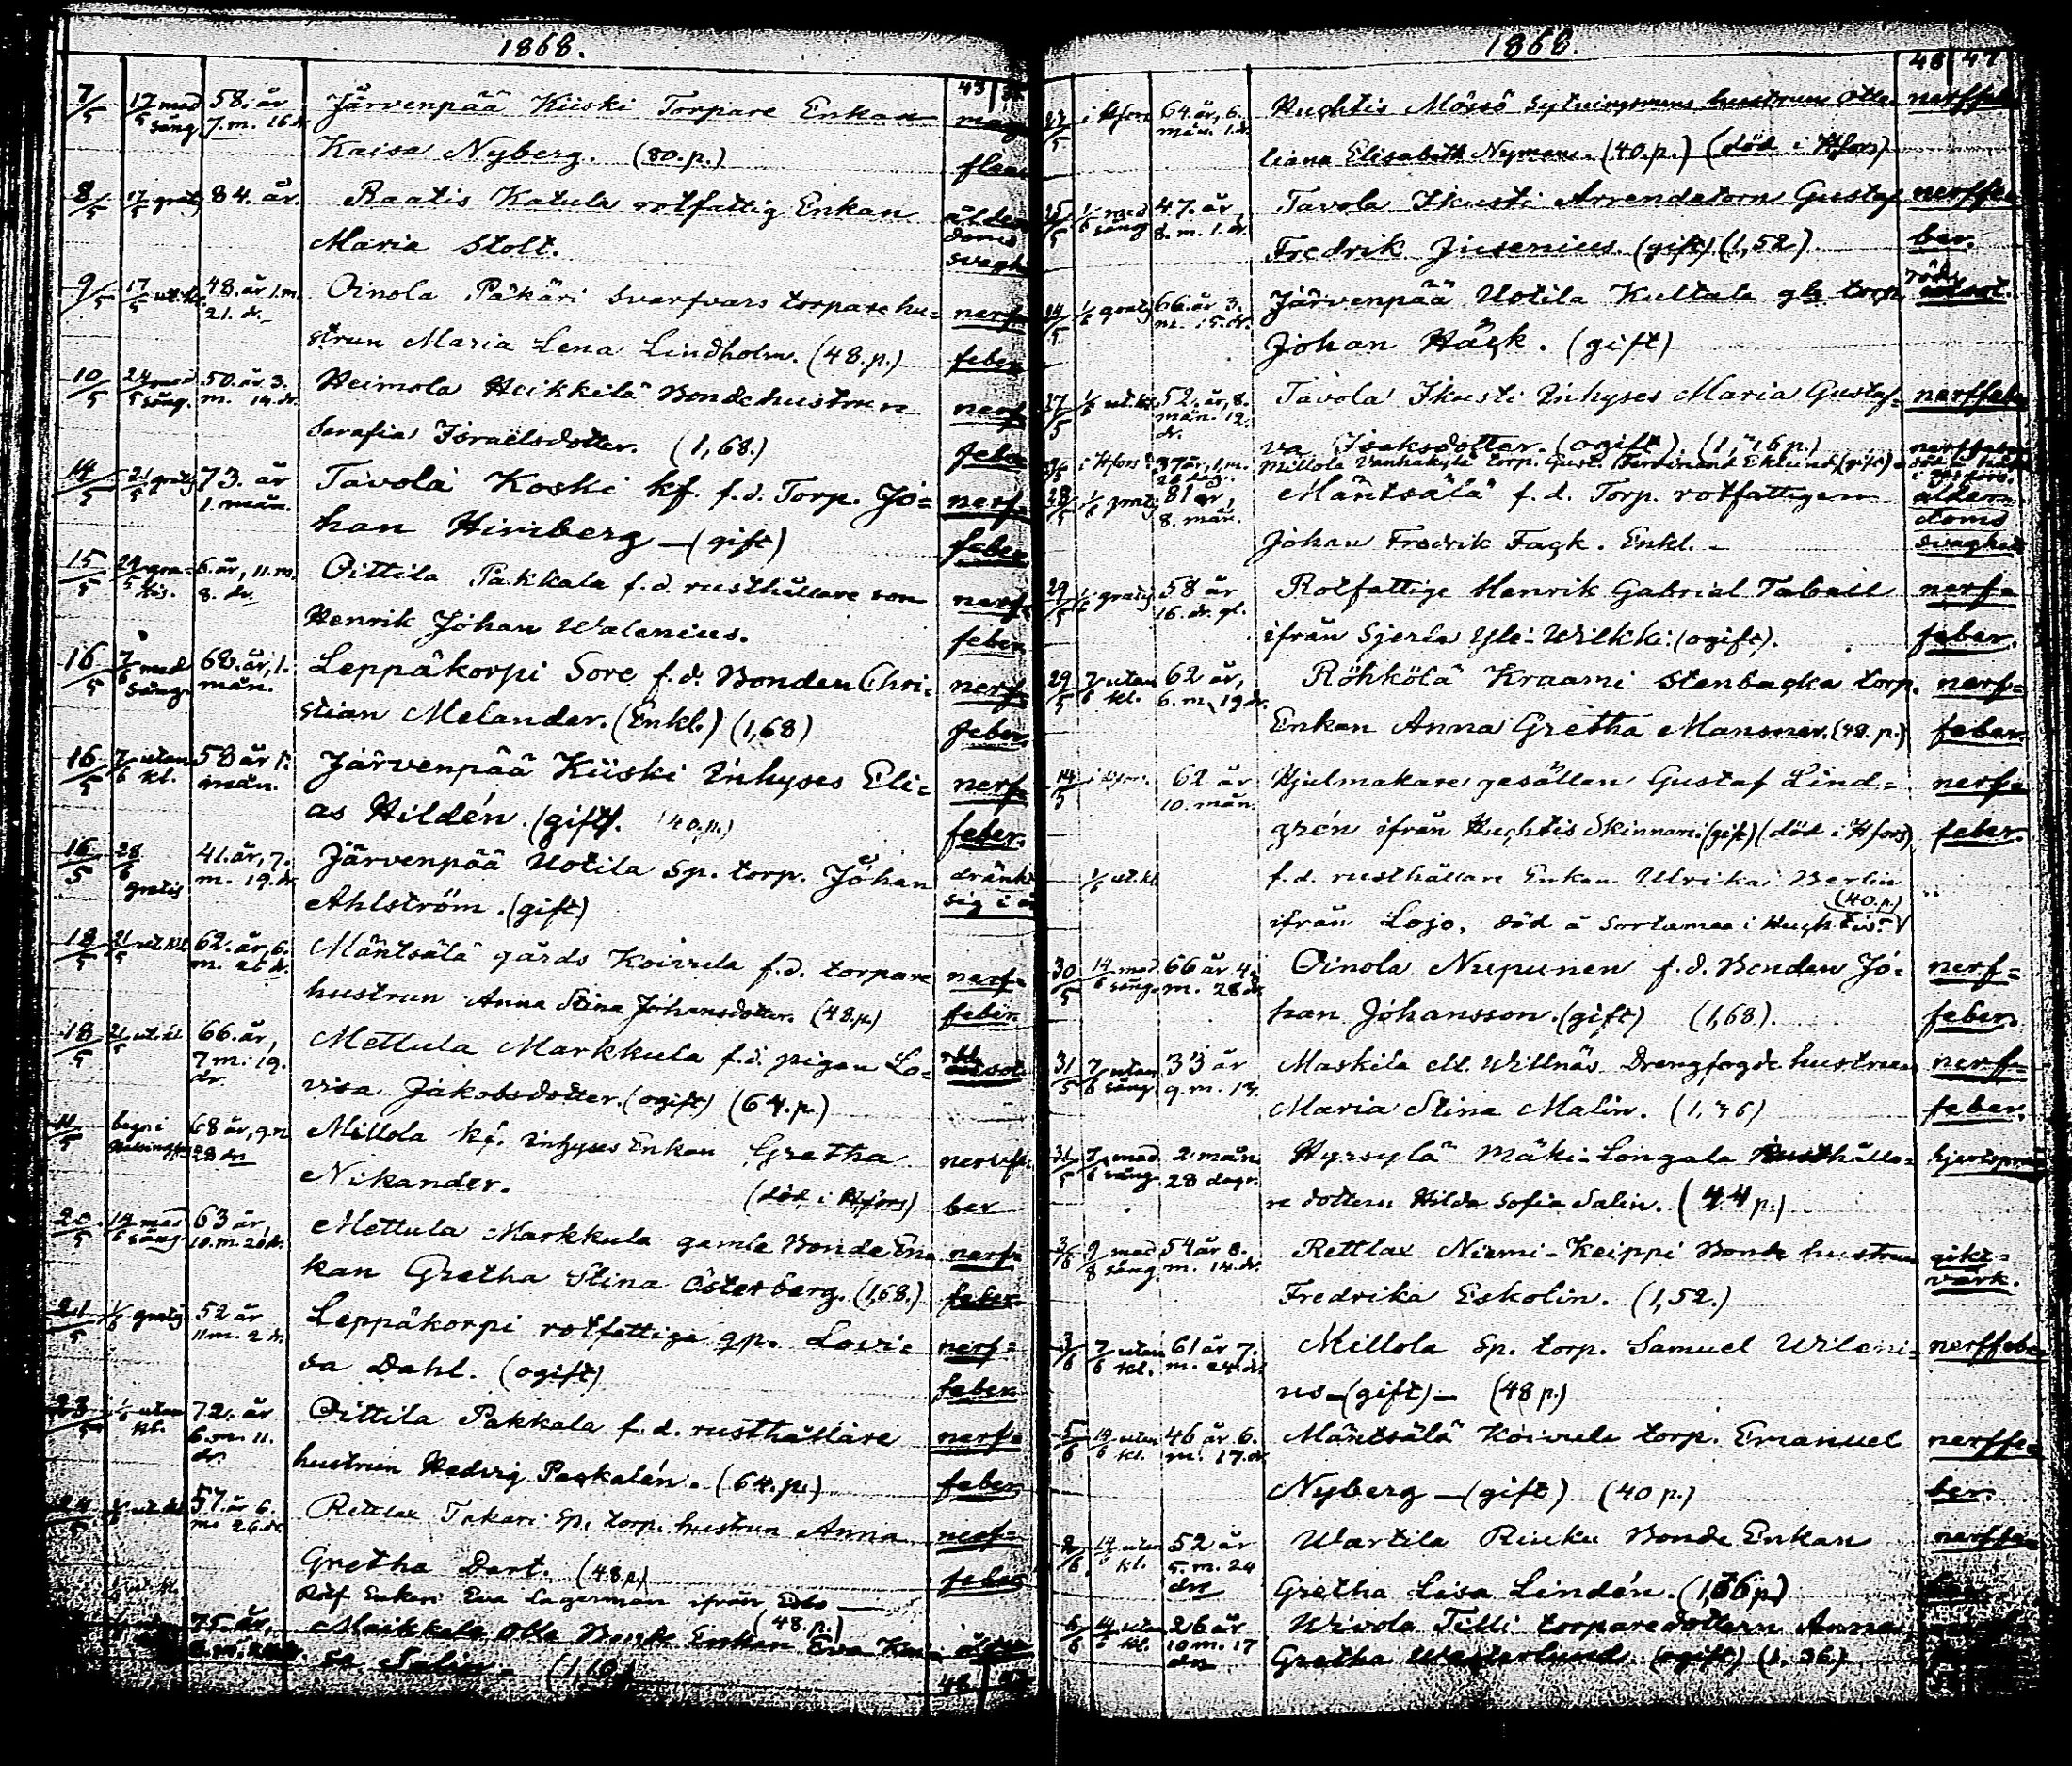 1868.
43
7/5 17/5 med sång. 58. år 7. m. 16 d. Järvenpää Kiiski Torpare Enkan
Kaisa Nyberg. (80. p.)
8/5 17/5 gratis 84. år. Raatis Katula rotfattig Enkan ålder
Maria Stolt. doms svagh
9/5 17/5 ut. kl. 48. år 1. m. 21. dr. Oinola Päkäri Svarfvars torpare hu= nerf=
strun Maria Lena Lindholm. (48. p.) feber
10/5 24/5 med sång. 50. år 3. m. 14. dr. Heimola Heikkilä Bondehustrun nerf
Serafia Israelsdotter. (1,68.) feber
14/5 21/5 gratis 73. år 1. mån. Tavola Koski kf. f.d. Torp. Jo= nerf=
han Himberg — (gift) feber
15/5 24/5 gratis. 6. år, 11. m. 8. dr. Oittila Pakkala f.d. rusthållare son nerf=
Henrik Johan Walenius. feber
16/5 7/6 med sång. 68. år, 1. mån. Leppäkorpi Sore f.d. Bonden Chri= nerf=
stian Melander. (Enkl.) (1,68) feber
16/5 7/6 utan kl. 58 år 1. mån. Järvenpää Kiiski Inhyses Eli= nerf=
as Hildén. (gift). (40. p.) feber.
16/5 28/6 gratis 41. år, 7. m. 19. dr Järvenpää Uotila Sp. torp. Johan dränkt
Ahlström. (gift) sig i
18/5 21/5 ut. kl. 62. år, 6. m. Mäntsälä gårds Koivula f.d. torpare nerf=
hustrun Anna Stina Johansdotter. (48. p.) feber
18/5 21/5 ut. kl. 66. år, 7 m. 19. dr. Mettula Markkula f.d. pigan Lo= röd sot
visa Jakobsdotter. (ogift) (64. p.)
/5 begr. i Helsingfors 68 år, 9. m 28 dr Millola kf. Inhyses Enkan Gretha nervfe
Nikander. (död i Hfors) ber
20/5 14/6 med sång 63 år, 10. m. 20 dr. Mettula Markkula gamle Bonde En= nerf=
kan Gretha Stina Österberg. (1,68.) feber
21/5 1/6 gratis 52 år 11 m. 2 dr Leppäkorpi rotfattige qp. Lovi= nerf=
sa Dahl. (ogift) feber
23/5 1/6 utan kl. 72. år 6. m. 11. dr. Oittila Pakkala f.d. rusthållare nerf=
hustrun Hedvig Paskalén. (64. p.) feber
24/5 ut. kl. 57. år 6. m. 26. dr. Rettlax Takari Sp. torp. hustrun Anna nerf=
Gretha Dart. (48. p.) feber
Rotf Enkan Eva Lagerman ifrån Esbo —
(48. p.)
75. år, Maikkala Olla Bonde Enkan Eva
sa Salin.
1868.
46 47
23/5 i Hfors 64. år, 6. mån. 1. dr. Huhtis Mössö Sytningsmans hustrun Otte= nerffeb
liana Elisabeth Nyman. (40. p.) (död i Hfors)
25/5 1/6 med sång 47. år 8. m. 1. dr. Tavola Ikusti Arrendatorn Gustaf nerffe=
Fredrik Jusenius. (gift) (1,52) ber.
24/5 1/6 gratis 66. år 3. m. 15. dr. Järvenpää Uotila Kultala gla torp. röd sot.
Johan Häck. (gift)
27/5 1/6 ut. kl. 52. år, 8. mån. 12. dr. Tavola Ikusti Inhyses Maria Gustaf= nerffeb
va Isaksdotter. (ogift)
i Hfors 37 år, 1. m. Millola Vanhakylä torp. Gust. Ferdinand Eklund (gift)
28/5 1/6 gratis 81 år, 8. mån. Mäntsälä f.d. Torp. rotfattigen ålder=
doms
Johan Fredrik Fack. Enkl. — svaghet
29/5 1/6 gratis 58 år 16. dr. gl. Rotfattige Henrik Gabriel Tabell nerf=
ifrån Sjerla Yli-Wilkki (ogift). feber.
29/5 7/6 utan kl. 62 år, 6. m. 19 dr. Röhkölä Kraami Stenbacka torp. nerf=
Enkan Anna Gretha Mansner. (48. p.) feber.
14/5 i Hfors. 62 år 10. mån. Hjulmakare gesällen Gustaf Lind= nerf=
grén ifrån Huhtis Skinnari (gift) (död i Hfors) feber.
1/6 ut. kl. f.d. rusthållare Enkan Ulrika Berlin "
(40. p.)
ifrån Lojo, död å Sortamaa i Huhtis.
30/5 14/6 med sång. 66 år 4. m. 28 dr. Oinola Nupunen f.d. Bonden Jo= nerf=
han Johansson. (gift) (1,68). feber.
31/5 7/6 utan sång. 33 år 9. m. 13. Maskila all. Willnäs Drengfogde hustrun nerf=
Maria Stina Malin. feber.
31/5 7/6 med sång. 2 mån. 28 dagr. Hyrsylä Mäki-Longala Rusthålla=
re dottern Hilda Sofia Salin. (44 p.)
3/6 9/8 med sång. 54 år 8. m. 14. dr. Rettlax Niemi-Keippi Bonde hustrun gikt=
värk.
Fredrika Eskolin. (1,52.)
3/6 7/6 utan kl. 61 år 7. m. 24. dr Millola Sp. torp. Samuel Wileni= nerffebe
us — (gift) — (48 p.)
5/6 14/6 utan kl. 46 år 6. m. 17. dr Mäntsälä Koivula torp. Emanuel nerffe=
Nyberg — (gift) (40 p.) ber.
2/6 14/6 utan kl. 52 år 5. m. 24 dr Wartila Rinku Bonde Enkan nerffe=
Gretha Lisa Lindén.
6/6 14/6 utan kl. 26 år 10 m. 17 dr Wivola Tilli torparedottern Anna
Gretha Westerlund (ogift) (1. 36)